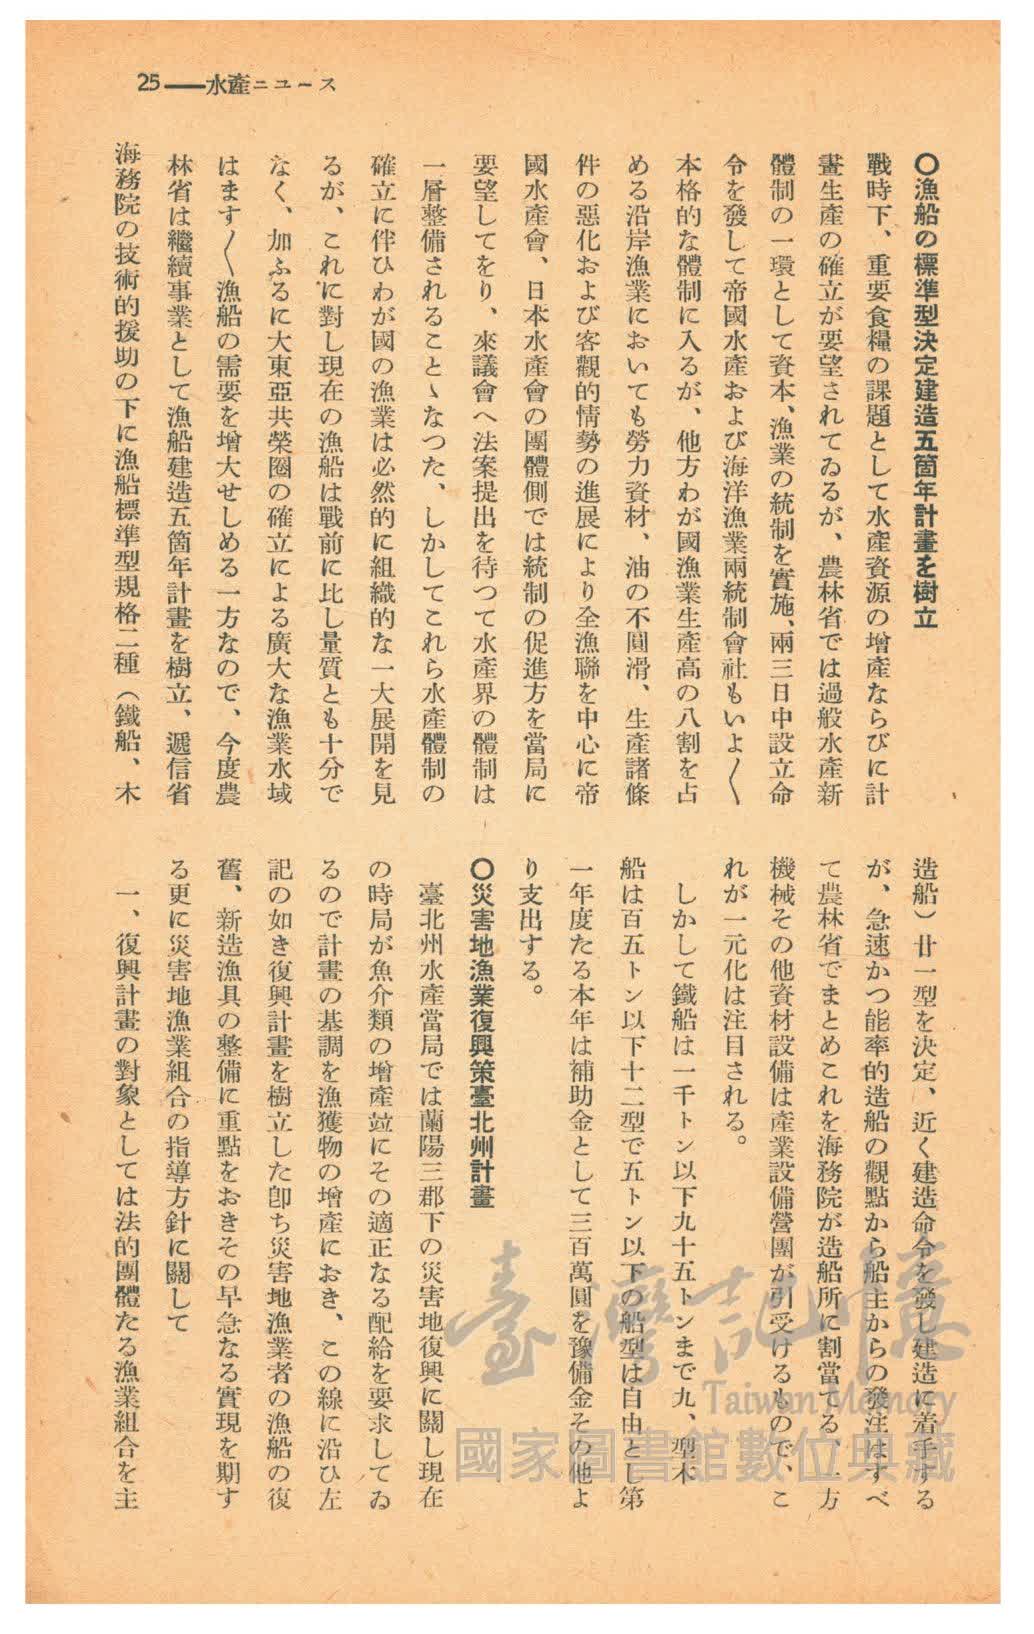 25——水產ニユース
〇漁船の標準型決定建造五箇年計畫を樹立
戰時下、重要食糧の課題として水產資源の增產ならびに計
畫生產の確立が要望されてゐるが、農林省では過般水產新
體制の一環として資本、漁業の統制を實施、兩三日中設立命
令を發して帝國水產および海洋漁業兩統制會社もいよ〱
本格的な體制に入るが、他方わが國漁業生產高の八割を占
める沿岸漁業においても勞力資材、油の不圓滑、生產諸條
件の惡化および客觀的情勢の進展により全漁聯を中心に帝
國水產會、日本水產會の團體側では統制の促進方を當局に
要望してをり、來議會へ法案提出を待つて水產界の體制は
一層整備されることゝなつた、しかしてこれら水產體制の
確立に伴ひわが國の漁業は必然的に組織的な一大展開を見
るが、これに對し現在の漁船は戰前に比し量質とも十分で
なく、加ふるに大東亞共榮圈の確立による廣大な漁業水域
はます〱漁船の需要を增大せしめる一方なので、今度農
林省は繼續事業として漁船建造五箇年計畫を樹立、遞信省
海務院の技術的援助の下に漁船標準型規格二種（鐵船、木
造船）廿一型を決定、近く建造命令を發し建造に着手する
が、急速かつ能率的造船の觀點から船主からの發注はすべ
て農林省でまとめこれを海務院が造船所に割當てる、一方
機械その他資材設備は產業設備營團が引受けるもので、こ
れが一元化は注目される。
しかして鐵船は一千トン以下九十五トンまで九、型木
船は百五トン以下十二型で五トン以下の船型は自由とし第
一年度たる本年は補助金として三百萬圓を豫備金その他よ
り支出する。
〇災害地漁業復興策臺北州計畫
臺北州水產當局では蘭陽三郡下の災害地復興に關し現在
の時局が魚介類の增產竝にその適正なる配給を要求してゐ
るので計畫の基調を漁獲物の增產におき、この線に沿ひ左
記の如き復興計畫を樹立した卽ち災害地漁業者の漁船の復
舊、新造漁具の整備に重點をおきその早急なる實現を期す
る更に災害地漁業組合の指導方針に關して
一、復興計畫の對象としては法的團體たる漁業組合を主
臺灣記憶
Taiwan Memory
國家圖書館數位典藏